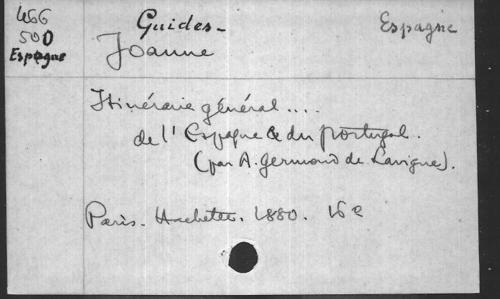 466
500
Espagne
Guides-
Joanne
Espagne
Itinéraire général....
de l'Espagne & du Portugal.
(par A. Germond de Lavigne).
Paris. Hachette. 1880. 16e